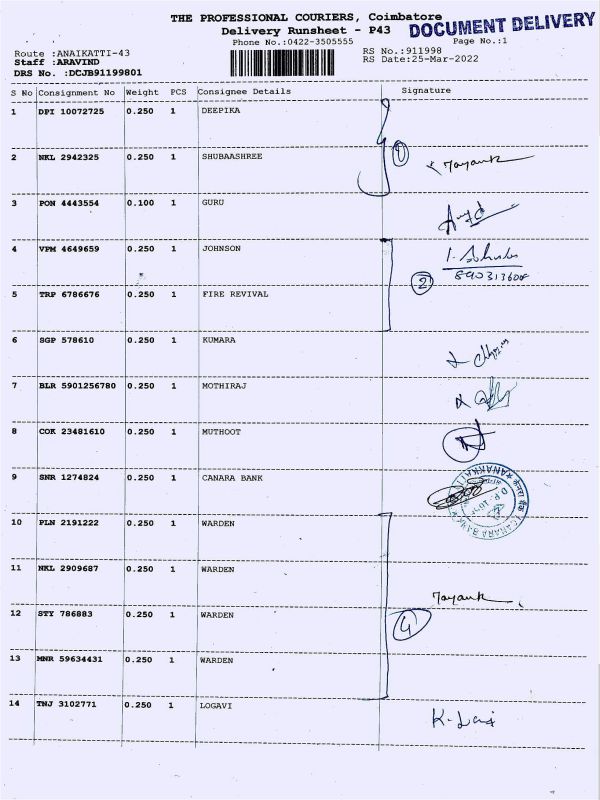 THE PROFESSIONAL COURIERS, Coimbatore
DOCUMENT DELIVERY
Delivery Runsheet - P43
Phone No.:0422-3505555
Page No.:1
Route :ANAIKATTI-43
RS No.:911998
Staff :ARAVIND
RS Date:25-Mar-2022
DRS No. :DCJB91199801
S No Consignment No Weight PCS Consignee Details Signature
1 DPI 10072725 0.250 1 DEEPIKA
1
2 NKL 2942325 0.250 1 SHUBAASHREE
Mayank
3 PON 4443554 0.100 1 GURU
4 VPM 4649659 0.250 1 JOHNSON
2
5 TRP 6786676 0.250 1 FIRE REVIVAL
6 SGP 578610 0.250 1 KUMARA
7 BLR 5901256780 0.250 1 MOTHIRAJ
8 COK 23481610 0.250 1 MUTHOOT
9 SNR 1274824 0.250 1 CANARA BANK
CANARA BANK
10 PLN 2191222 0.250 1 WARDEN
11 NKL 2909687 0.250 1 WARDEN
Mayank
12 STY 786883 0.250 1 WARDEN
4
13 MNR 59634431 0.250 1 WARDEN
14 TNJ 3102771 0.250 1 LOGAVI